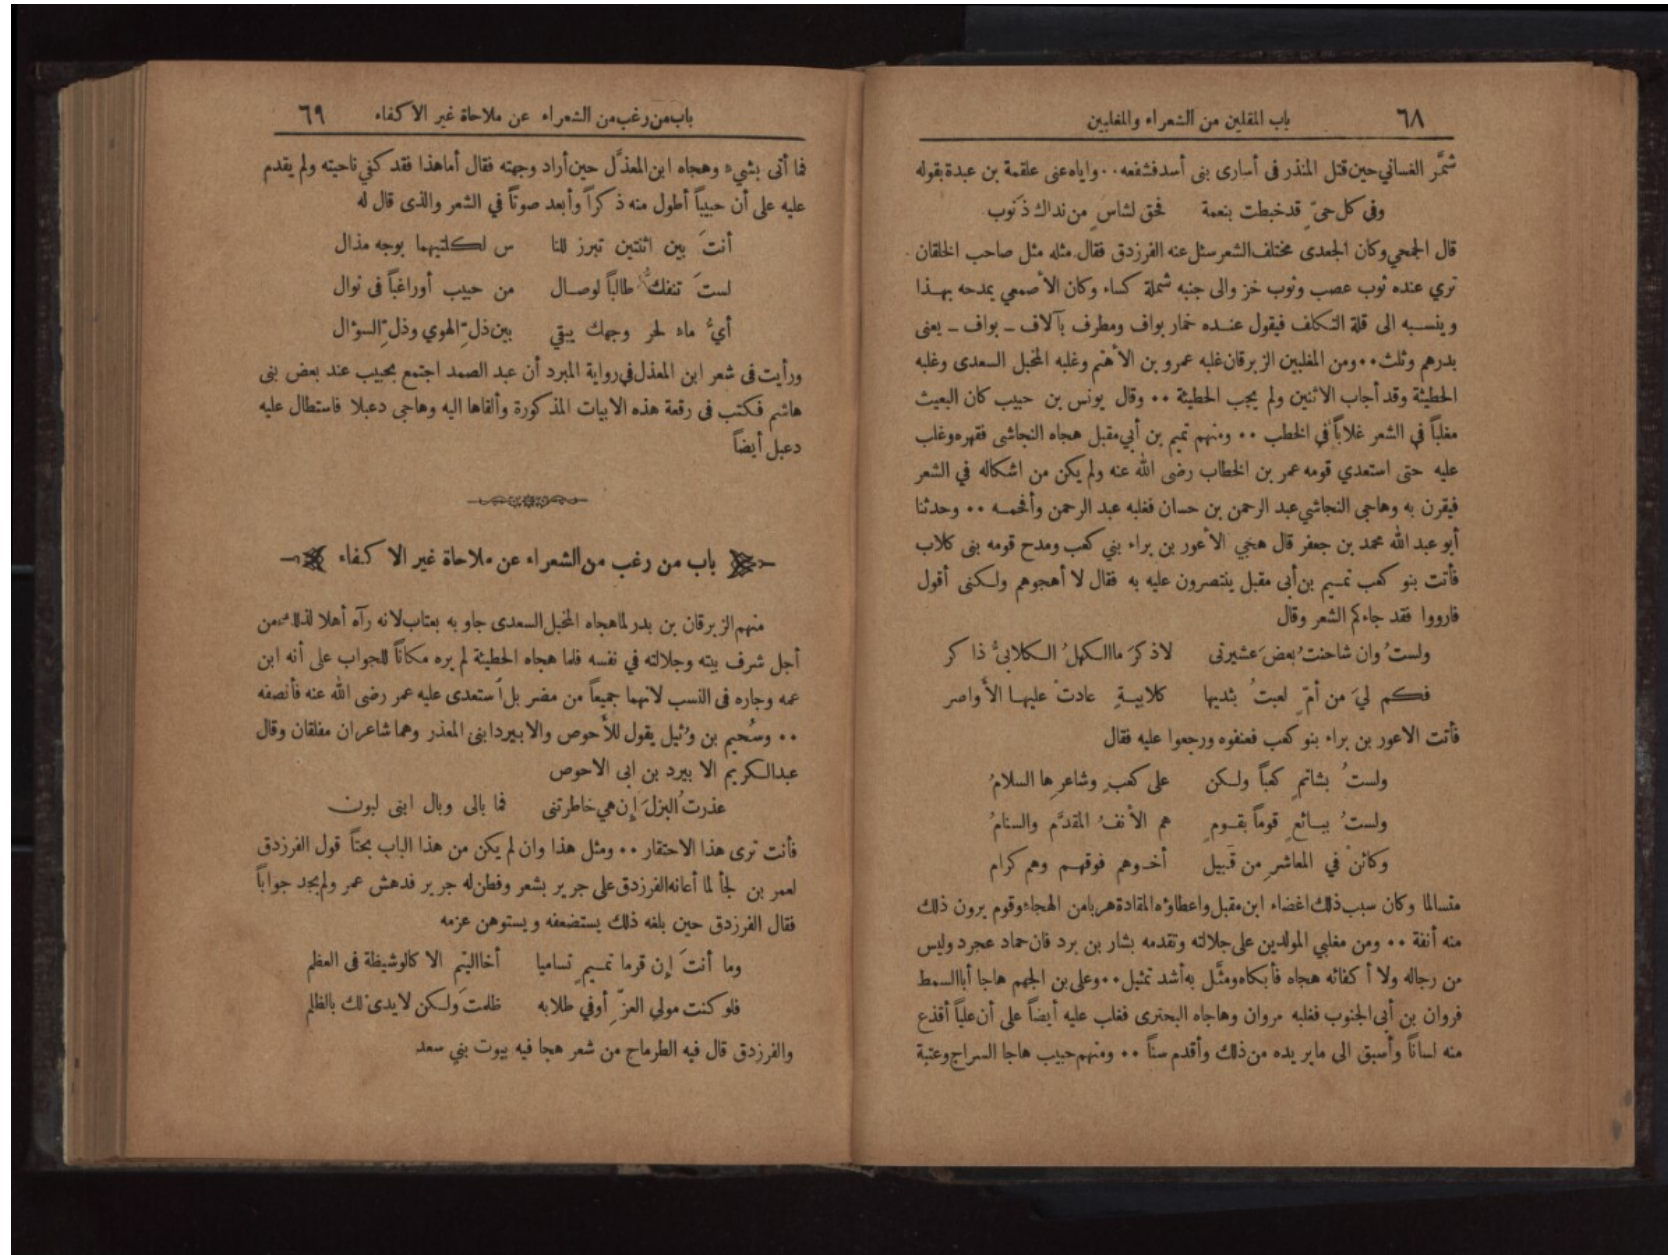 ٦٨ باب المقلين من الشعراء والمغلبين
شمَّر الغساني حين قتل المنذر في أسارى بنى أسد فشفعه ٠٠ واياه عنى علقمة بن عبدة بقوله
وفي كل حيّ قد خبطت بنعمة فحق لشاسٍ من نداك ذَنوب
قال الجمحي وكان الجعدى مختلف الشعر سئل عنه الفرزدق فقال مثله مثل صاحب الخلقان
تري عنده ثوب عصب وثوب خز والى جنبه شملة كساء وكان الأصمعي يمدحه بهـذا
وينسـبه الى قلة التكلف فيقول عنـده خمار بواف ومطرف بآلاف ـ بواف ـ يعنى
بدرهم وثلث ٠٠ ومن المغلبين الزبرقان غلبه عمرو بن الأهتم وغلبه المخبل السعدى وغلبه
الحطيئة وقد أجاب الاثنين ولم يجب الحطيئة ٠٠ وقال يونس بن حبيب كان البعيث
مغلباً في الشعر غلاباً في الخطب ٠٠ ومنهم تميم بن أبي مقبل هجاه النجاشى فقهره وغلب
عليه حتى استعدي قومه عمر بن الخطاب رضى الله عنه ولم يكن من اشكاله في الشعر
فيقرن به وهاجى النجاشي عبد الرحمن بن حسان فغلبه عبد الرحمن وأفحمـه ٠٠ وحدثنا
أبو عبد الله محمد بن جعفر قال هجي الأعور بن براء بني كعب ومدح قومه بنى كلاب
فأتت بنو كعب تمـيم بن أبى مقبل ينتصرون عليه به فقال لا أهجوهم ولـكنى أقول
فارووا فقد جاءكم الشعر وقال
ولستُ وان شاحنتُ بعضَ عشيرتى لاذكرَ ماالكهلُ الكلابيُّ ذاكر
فـكم ليَ من أمّ لعبتُ بثديها كلابيـةٍ عادتْ عليهـا الأواصر
فأتت الاعور بن براء بنو كعب فعنفوه ورجعوا عليه فقال
ولستُ بشاتمٍ كعباً ولـكن على كعبٍ وشاعرها السلامُ
ولستُ ببـائعٍ قوماً بقـومٍ هم الأنفُ المقدَّم والسنامُ
وكائنْ في المعاشرِ من قَبيل أخـوهم فوقهـم وهم كرام
متسالما وكان سبب ذلك اغضاء ابن مقبل واعطاؤه المقادة هربا من الهجاء وقوم يرون ذلك
منه أنفة ٠٠ ومن مغلبي المولدين على جلالته وتقدمه بشار بن برد فان حماد عجرد وليس
من رجاله ولا أكفائه هجاه فأبكاه ومثَّل به أشد تمثيل ٠٠ وعلى بن الجهم هاجا أبا السمط
فروان بن أبى الجنوب فغلبه مروان وهاجاه البحترى فغلب عليه أيضاً على أن علياً أقذع
منه لساناً وأسبق الى ما يريده من ذلك وأقدم سناً ٠٠ ومنهم حبيب هاجا السراج وعتبة
باب من رغب من الشعراء عن ملاحاة غير الأكفاء ٦٩
فما أتى بشيء وهجاه ابن المعذَّل حين أراد وجهته فقال أما هذا فقد كفي ناحيته ولم يقدم
عليه على أن حبيباً أطول منه ذكراً وأبعد صوتاً في الشعر والذى قال له
أنتَ بين اثنتين تبرز للنا س لـكلتيهما بوجه مذال
لستَ تنفكُّ طالباً لوصـال من حبيب أوراغباً في نوال
أيُّ ماء لحر وجهك يبقي بين ذلّ الهوي وذلّ السؤال
ورأيت في شعر ابن المعذل في رواية المبرد أن عبد الصمد اجتمع بحبيب عند بعض بنى
هاشم فكتب في رقعة هذه الابيات المذكورة وألقاها اليه وهاجى دعبلا فاستطال عليه
دعبل أيضاً
باب من رغب من الشعراء عن ملاحاة غير الاكفاء
منهم الزبرقان بن بدر لما هجاه المخبل السعدى جاوبه بعتاب لانه رآه أهلا لذلك من
أجل شرف بيته وجلالته في نفسه فلما هجاه الحطيئة لم يره مكاناً للجواب على أنه ابن
عمه وجاره فى النسب لانهما جميعاً من مضر بل استعدى عليه عمر رضى الله عنه فأنصفه
٠٠ وسُحيم بن وثيل يقول للأحوص والابيرد ابنى المعذر وهما شاعران مفلقان وقال
عبد الـكريم الابيرد بن ابى الاحوص
عذرتُ البزلَ إن هي خاطرتنى فما بالى وبال ابنى لبون
فأنت ترى هذا الاحتقار ٠٠ ومثل هذا وان لم يكن من هذا الباب بحتاً قول الفرزدق
لعمر بن لجأ لما أعانه الفرزدق على جرير بشعر وفطن له جرير فدهش عمر ولم يجد جواباً
فقال الفرزدق حين بلغه ذلك يستضعفه ويستوهن عزمه
وما أنتَ إن قرما تمـيمٍ تساميا أخا اليتم الا كالوشيظة فى العظم
فلو كنت مولي العزّ أوفي طلابه ظلمتَ ولـكن لا يدى لك بالظلم
والفرزدق قال فيه الطرماح من شعر هجا فيه بيوت بني سعد